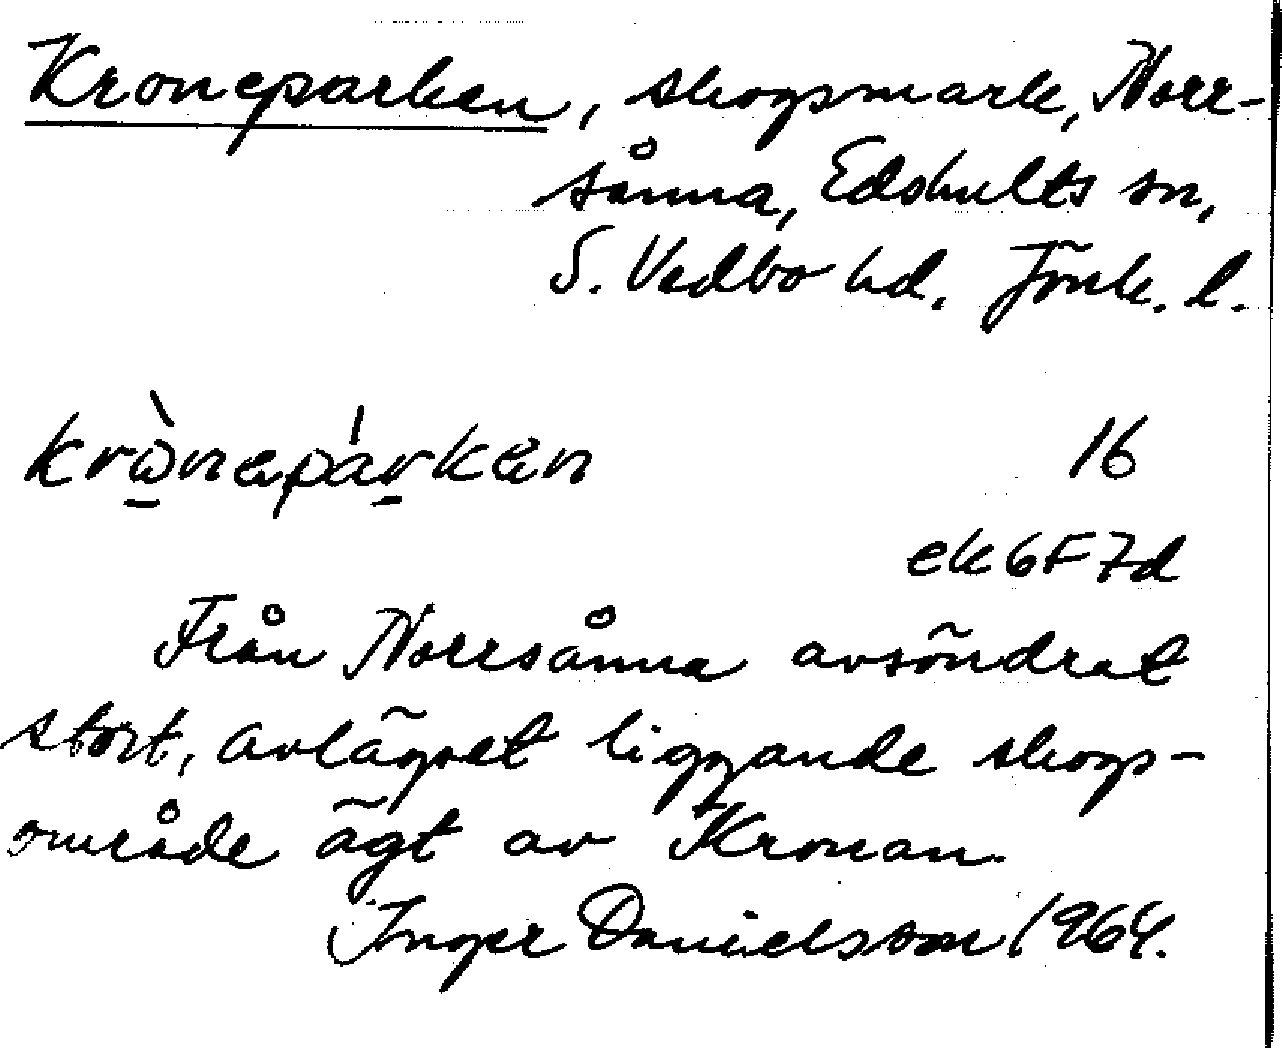 Kroneparken, skogsmark, Norr-
sånna, Edshults sn,
S. Vedbo hd. Jönk. l.
krònepárken 16
ek 6F7d
Från Norrsånna avsöndrat
stort, avlägset liggande skogs-
område ägt av Kronan.
Inger Danielsson 1964.